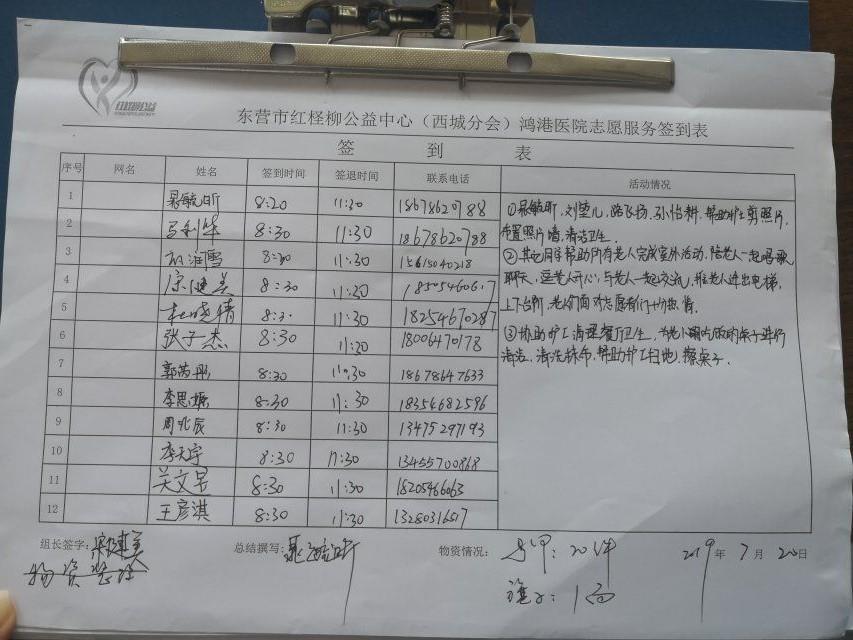 东营市红柽柳公益中心（西城分会）鸿港医院志愿服务签到表
签 到 表
序号 网名 姓名 签到时间 签退时间 联系电话 活动情况
1 晁毓昕 8:20 11:30 18678620788
2 8:30 11:30 18678620788
3 8:30 11:30 15615040218
4 宗健美 8:30 11:30
5 杜晓倩 11:30 18254670287
6 张子杰 8:30 11:20 18006470178
7 郭芮彤 8:30 11:30 18678647633
8 李思 8:30 11:30 18354682596
9 周兆辰 8:30 11:30 13475297193
10 李天宇 8:30 11:30 13455700868
11 关文昱 8:30 11:30 18205466063
12 王彦淇 8:30 11:30
①晁毓昕，刘莹儿，路飞扬，孙怡耕，帮助护工剪照片，
布置照片墙，清洁卫生。
②其它同学帮助所有老人完成室外活动，陪老人一起唱歌
聊天，逗老人开心，与老人一起交流，推老人进出电梯，
上下台阶，老人们面对志愿者们十分热情。
③协助护工清理餐厅卫生，为老人吃饭的桌子进行
清洁，清洗抹布，帮助护工扫地，擦桌子。
组长签字：宗健美 总结撰写：晁毓昕 物资情况：马甲：20件 2019年7月20日
物资整理 旗子：1面